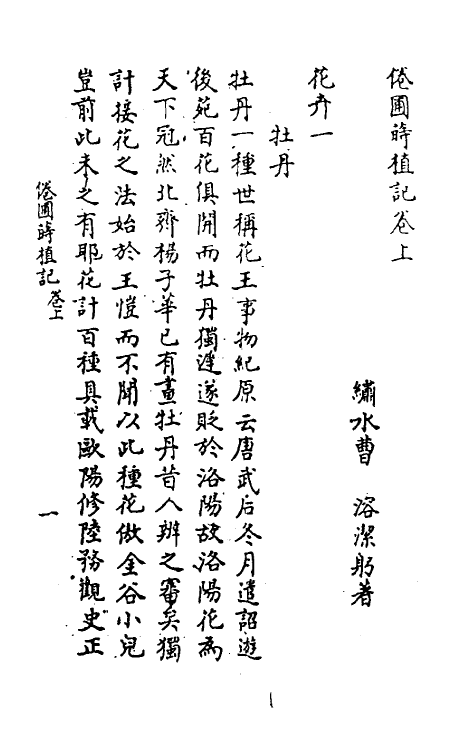 倦圃蒔植記卷上
繡水曹 溶潔躬著
花卉一
牡丹
牡丹一種世稱花王事物紀原云唐武后冬月遣詔遊
後苑百花俱開而牡丹獨遲遂貶於洛陽故洛陽花為
天下冠然北齊楊子華已有畫牡丹昔人辨之審矣獨
計接花之法始於王愷而不聞以此種花倣金谷小兒
豈前此未之有耶花計百種具載歐陽修陸務觀史正
倦圃蒔植記 卷上
一